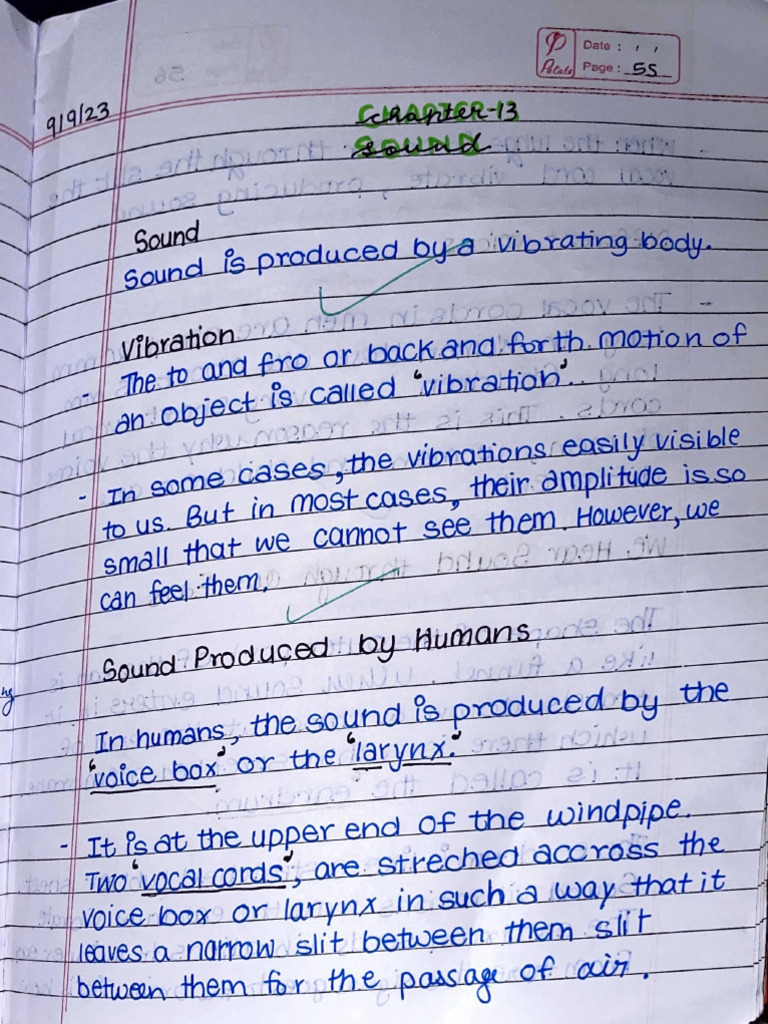 Date : , ,
Potato Page : 55
9/9/23
Chapter-13
Sound
Sound
Sound is produced by a vibrating body.
Vibration
- The to and fro or back and forth motion of
an object is called "vibration".
- In some cases, the vibrations easily visible
to us. But in most cases, their amplitude is so
small that we cannot see them. However, we
can feel them.
Sound Produced by Humans
- In humans, the sound is produced by the
"voice box" or the "larynx."
- It is at the upper end of the windpipe.
Two "vocal cords", are streched accross the
voice box or larynx in such a way that it
leaves a narrow slit between them slit
between them for the passage of air.